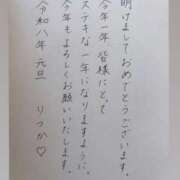 明けましておめでとうございます。
今年一年、皆様にとって
ステキな一年になりますように。
今年もよろしくお願いいたします。
令和八年 元旦 りつか♡